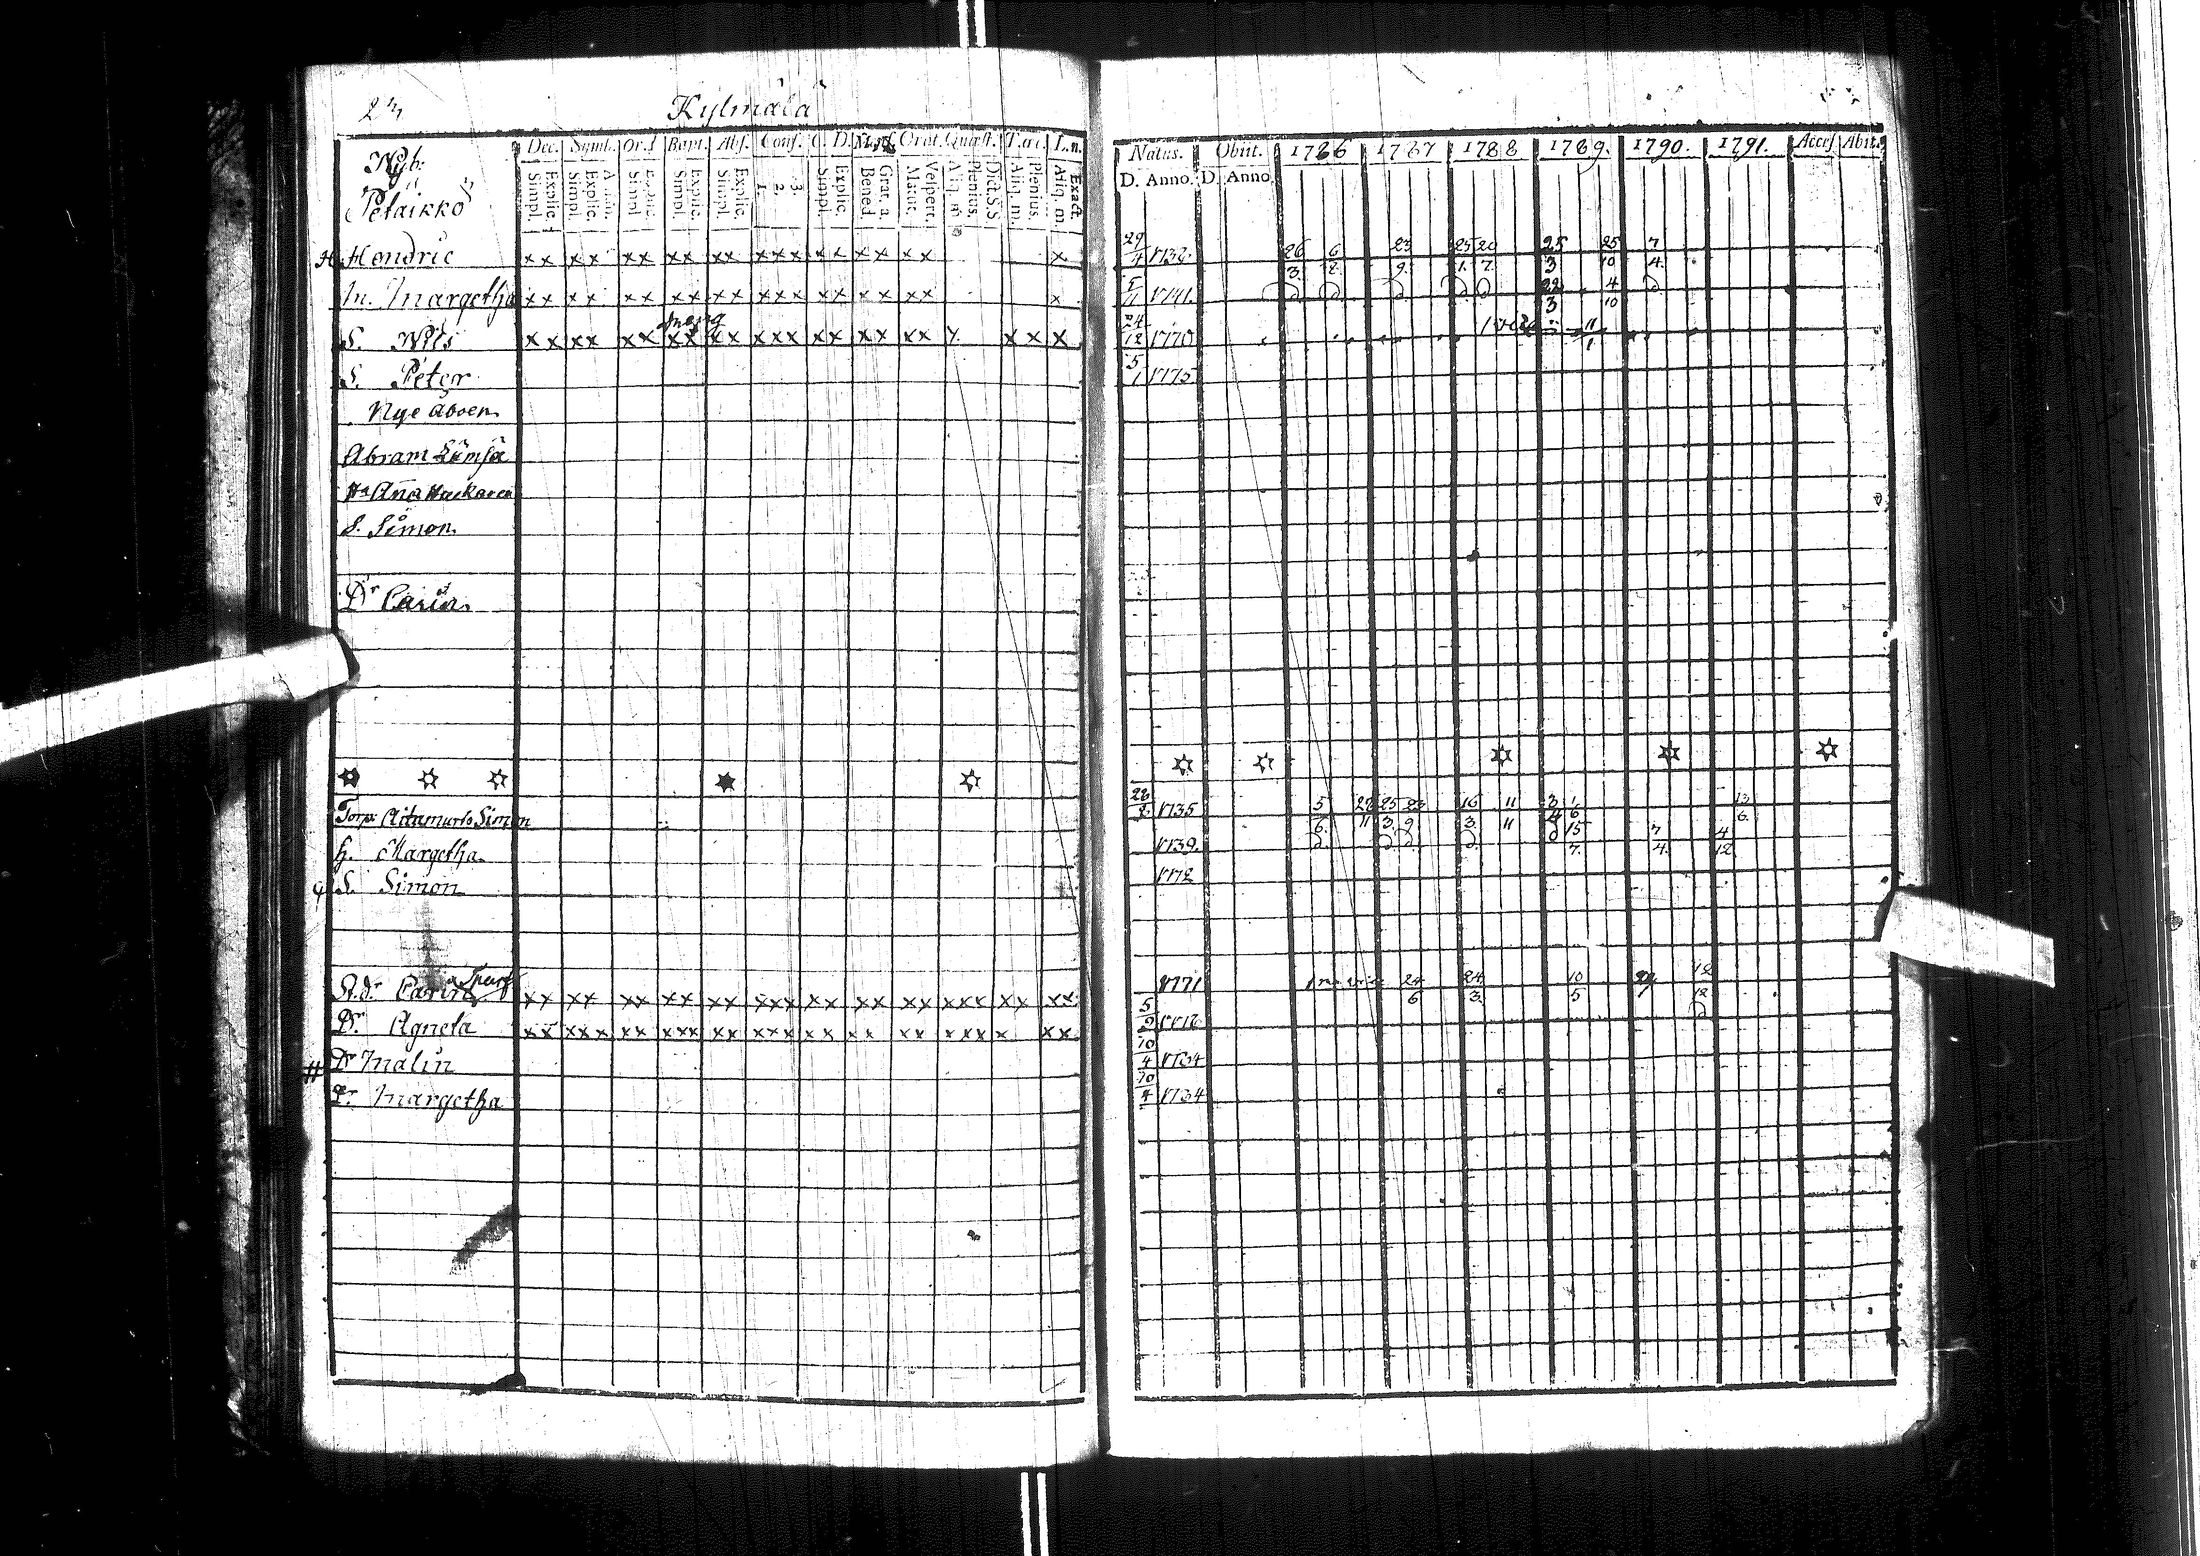 Kylmälä
Dec. Symb. Or. D Bapt. Abs. Conf. C. D. Mens. Orat. Quæst. T. œc. L. n.
Nyb:
Petäikkö
Simpl. Explic. Simpl. Explic. Simpl. Explic. Simpl. Explic. Simpl. Explic. 1. 2. 3. Simpl. Explic. Bened. Grat. a. Matut. Vespert. Aliq. m. Plenius. Dict. S.S. Aliq. m. Plenius. Aliq. m. Exact.
Hendric x x x x x x x x x x x x x x x x x x x x
m. Margetha x x x x x x x x x x x x x x x x x x x x
S. Nils x x x x x x x x x x x x x x x x x x x x x x x
S. Peter
Nye aboen
Abram Lämsä
Hu Aña Haikaren
S. Simon
Dr Carin
Torp: Aitamurto Simon
h. Margetha
S. Simon
St.dr Carin x x x x x x x x x x x x x x x x x x x x x x x x x x x x
Dr Agneta x x x x x x x x x x x x x x x x x x x x x x x x x x x x x
Dr Malin
Dr Margetha
Natus. Obiit. 1786 1787 1788 1789. 1790. 1791. Access Abiit.
D. Anno. D. Anno
29/4 26/3. 6/8. 23/9. 25/1. 20/7. 25/3 25/10 7/4.
5/11 1741. 22/3 4/10
24/12 1770 11/1
5/1 1775
1735 5/6. 25/3. 23/9. 16/3. 11/11 3/4 1/6 13/6.
1739. 15/7. 7/4. 4/12
1772
1771 24/6 24/3. 10/5 12/12
5/9
10/4 1784
10/4 1784